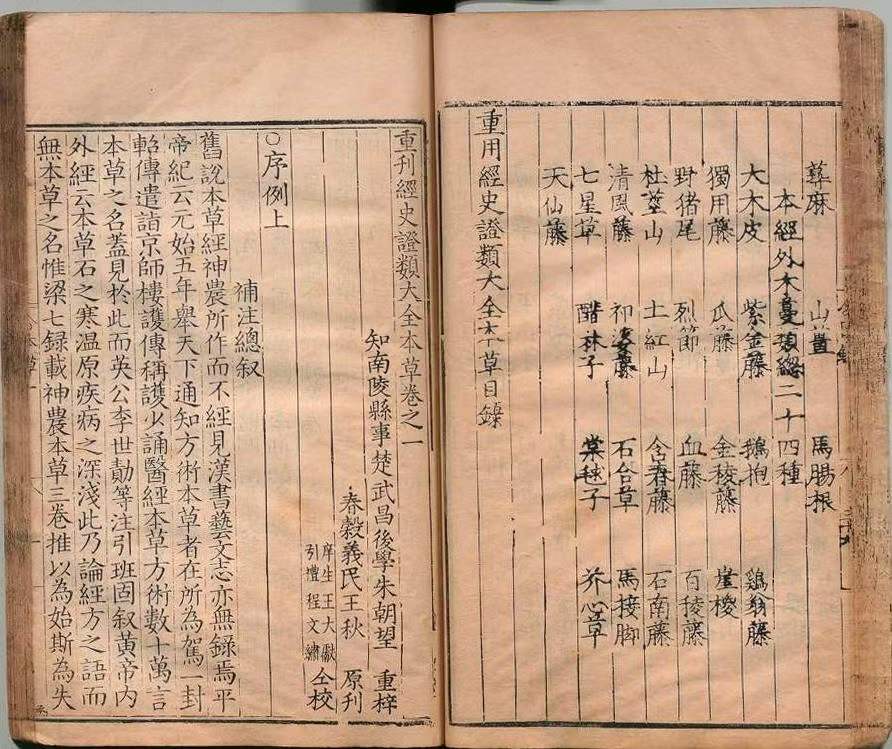 蕁麻 山薑 馬腸根
本經外木蔓類總二十四種
大木皮 紫金藤 鵝抱 鷄翁藤
獨用藤 瓜藤 金稜藤 崖椶
野猪尾 烈節 血藤 百稜藤
杜莖山 土紅山 含春藤 石南藤
清風藤 祁婆藤 石合草 馬接脚
七星草 醋林子 棠毬子 芥心草
天仙藤
重用經史證類大全本草目録
重刊經史證類大全本草卷之一
知南陵縣事楚武昌後學朱朝望 重梓
春穀義民王秋 原刊
庠生王大獻
引禮程文繡 仝校
○序例上
補注總叙
舊說本草經神農所作而不經見漢書藝文志亦無錄焉平
帝紀云元始五年舉天下通知方術本草者在所為駕一封
軺傳遣詣京師樓護傳稱護少誦醫經本草方術數十萬言
本草之名蓋見於此而英公李世勣等注引班固叙黃帝內
外經云本草石之寒温原疾病之深淺此乃論經方之語而
無本草之名惟梁七録載神農本草三卷推以為始斯為失